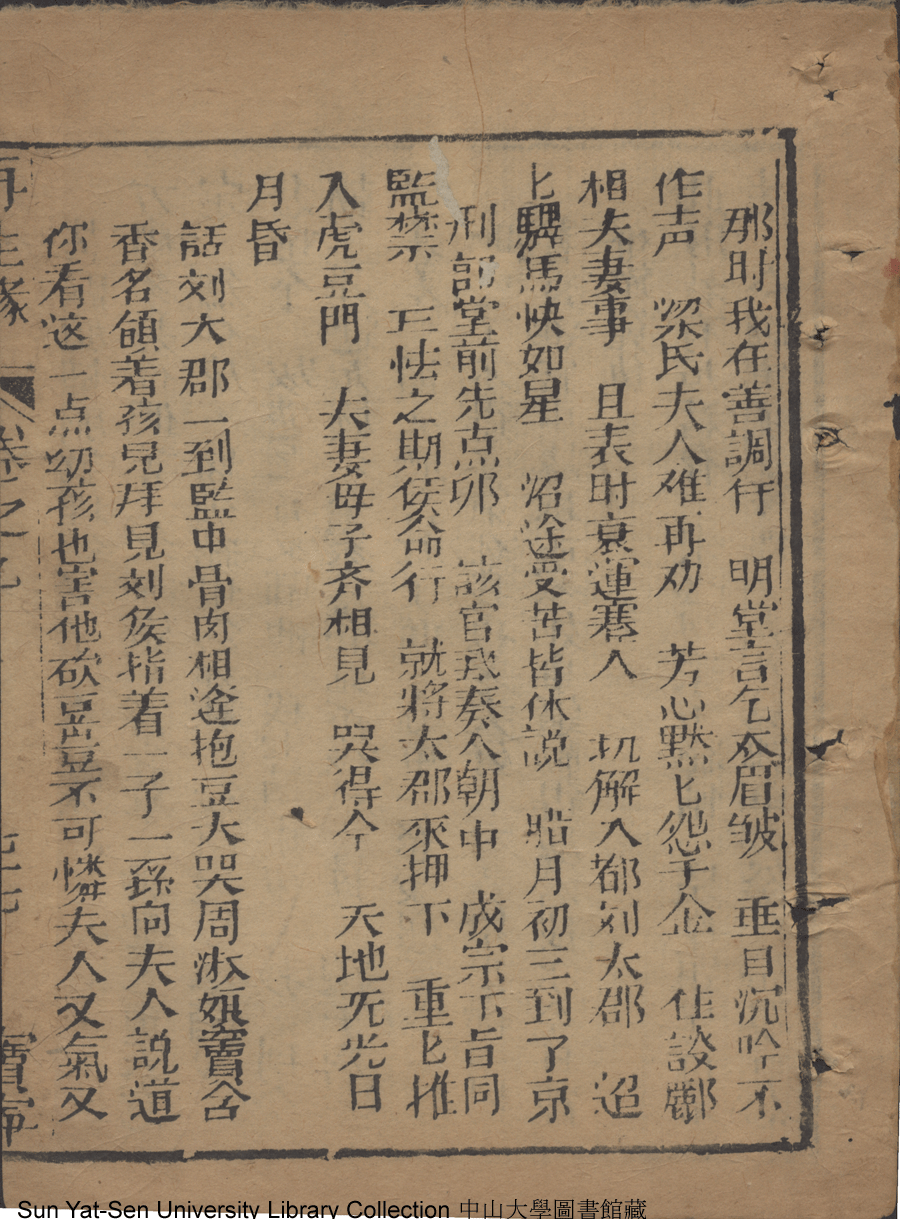 那时我在善調仃　明堂言乞双眉皱　垂目沉吟不
作声　梁氏夫人难再劝　芳心黙匕怨于金　住設酈
相夫妻事　且表时衰運蹇人　扒解入都刘太郡　迢
匕驛馬快如星　沿途受苦皆休説　腊月初三到了京
刑部堂前先点卯　該官玳奏入朝中　成宗下旨同
監禁　正怯之期候命行　就將太郡來押下　重匕推
入虎豆門　夫妻毋子齐相見　哭得今　天地无光日
月昏
話刘大郡一到監中骨肉相逢抱豆大哭周淑姬竇含
香名領着孩児拜見刘侯指着一子一孫向夫人説道
你看这一点幼孩也害他砍豈豈不可憐夫人又氣又
再生緣　卷之九　七　寳寧
Sun Yat-Sen University Library Collection 中山大學圖書館藏